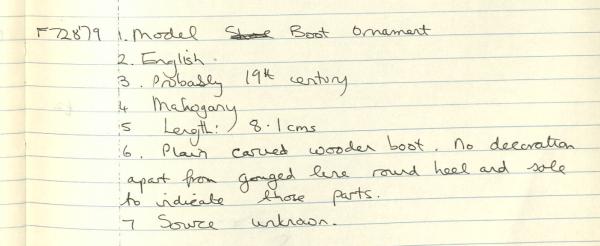 F72879 1. Model Shoe Boot Ornament
2. English.
3. Probably 19th century
4 Mahogany
5 Length: 8.1cms
6. Plain carved wooden boot. No decoration
apart from gouged line round heel and sole
to indicate those parts.
7 Source unknown.